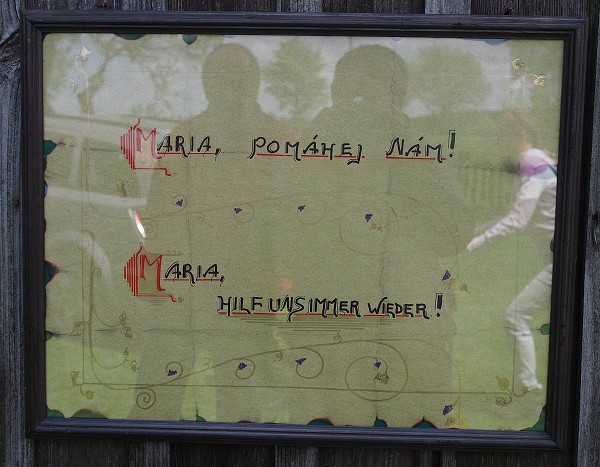 MARIA, POMÁHEJ NÁM!
MARIA,
HILF UNS IMMER WIEDER!